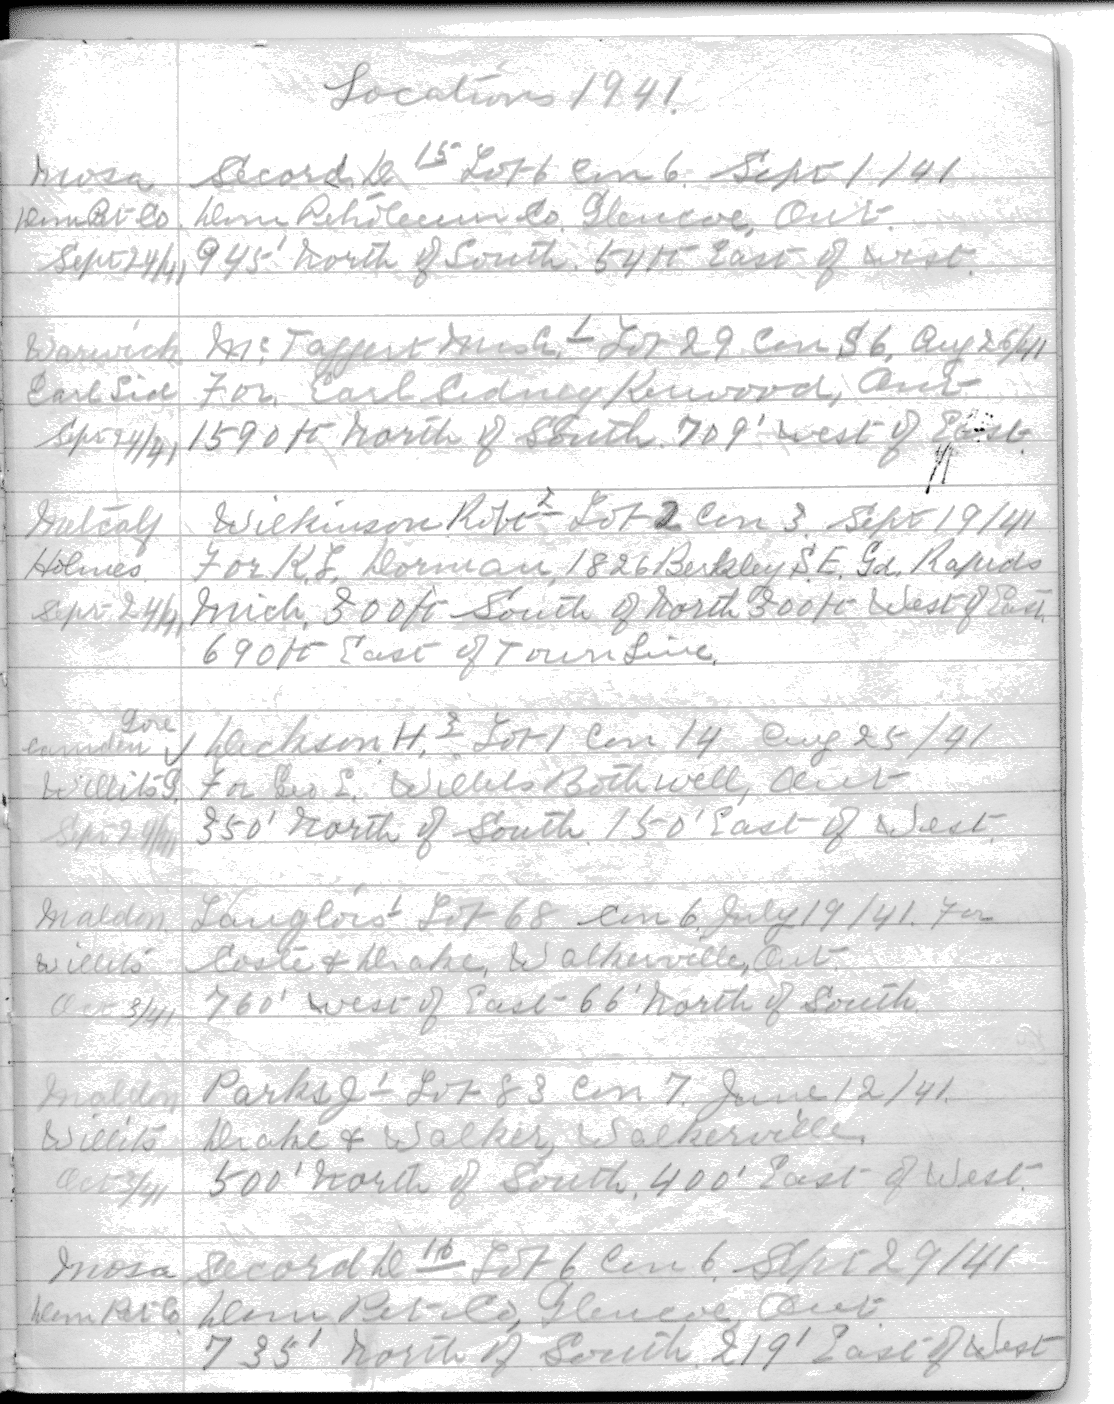 Locations 1941.
Mosa Secord, D 15 Lot 6 Con 6. Sept 1/41
Dom Pet Co. Dom Petroleum Co. Glencoe, Ont.
Sept 24/41 945' North of South. 54 ft East of West.
Warwick McTaggert Mrs. 1 Lot 29 Con S 6. Aug 26/41
Earl Sid For. Earl Sidney Kerwood, Ont.
Sept 24/41 1590 ft North of South. 709' West of East.
Metcalf Wilkinson Robt 2 Lot 2 Con 3. Sept 19/41
Holmes. For K.L. Dorman, 1826 Berkley S.E. Gd. Rapids
Sept 24/41 Mich. 300 ft South of North 300 ft West of East.
690 ft East of Town Line.
Gore
Camden Dickson, H. 3 Lot 1 Con 14 Aug 25/41
Willits G. For Geo L. Willits Bothwell, Ont
Sept 29/41 350' North of South. 150' East of West.
Maldon Langlois 1 Lot 68 Con 6. July 19/41. For
Willits Coste & Drake, Walkerville, Ont.
Oct 3/41 760' West of East - 66' North of South.
Maldon Parks J 1 Lot 83 Con 7. June 12/41.
Willits Drake & Walker, Walkerville.
Oct 3/41 500' North of South. 400' East of West.
Mosa Secord D 16 Lot 6 Con 6. Sept 29/41
Dom Pet Co. Dom Pet Co, Glencoe, Ont
735' North of South. 219' East of West